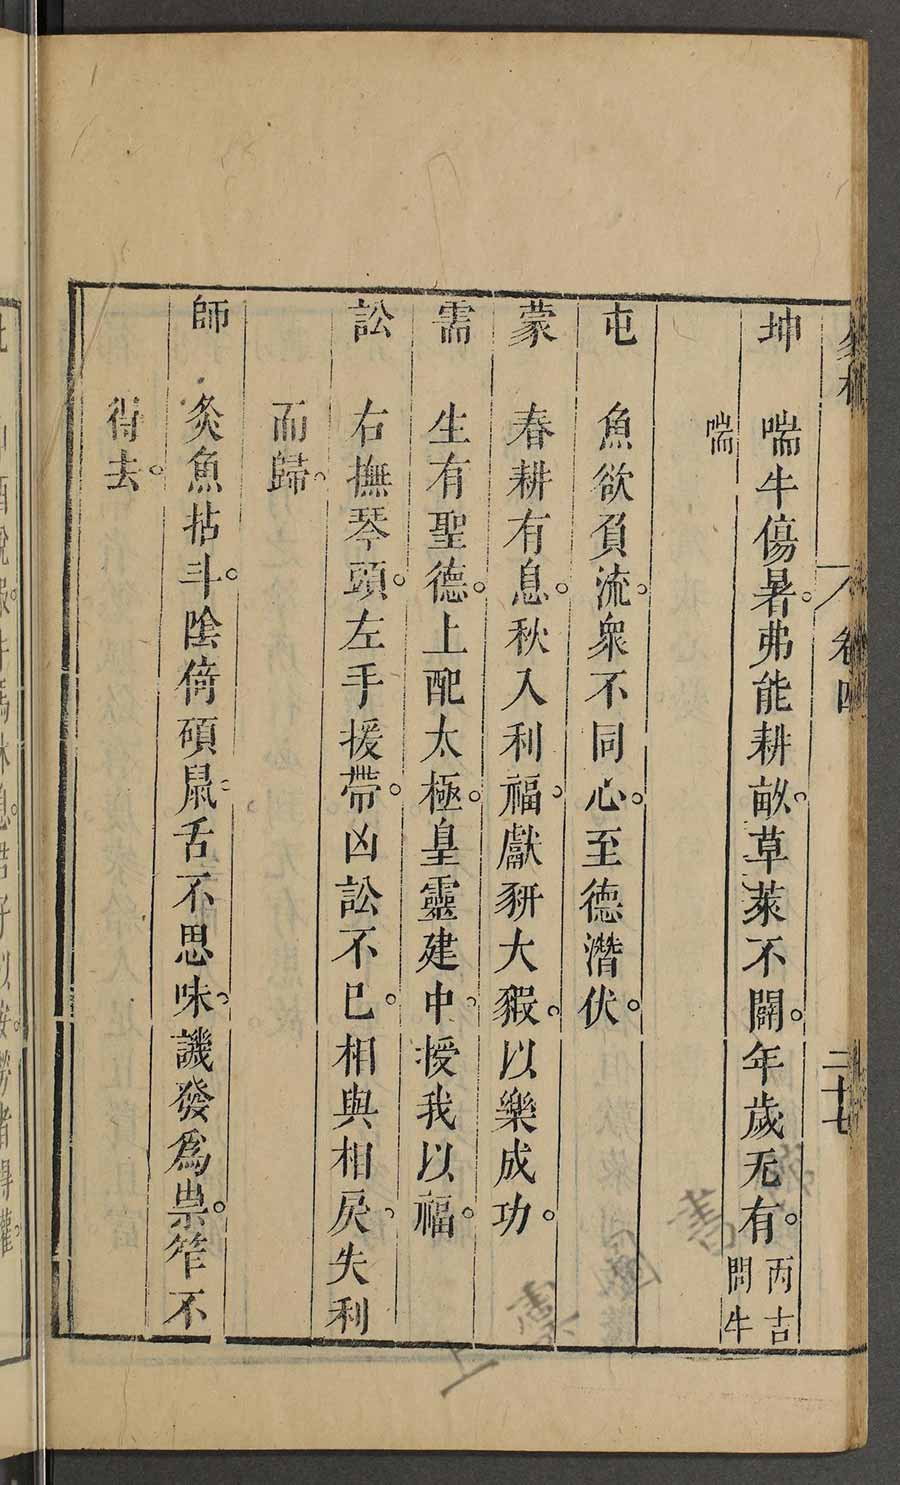 卷四
二十七
坤 喘牛傷暑。弗能耕畝。草萊不闢。年歲无有。丙吉問牛
喘
屯 魚欲負流。衆不同心。至德潛伏。
蒙 春耕有息。秋入利福。獻豣大豭。以樂成功。
需 生有聖德。上配太極。皇靈建中。授我以福。
訟 右撫琴頭。左手援帶。凶訟不已。相與相戾。失利
而歸。
師 炙魚拈斗。陰倚碩鼠。舌不思味。譏發爲祟。笮不
得去。